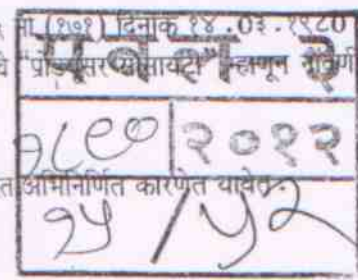 मा (१७१) दिनांक १४.०३.१९८०
प व ल ३
"प्रोड्युसर सोसायटी" म्हणून नोंदणी
२०२२
त अभिनिर्णित कारणेत यावेत.
१५ / ५२